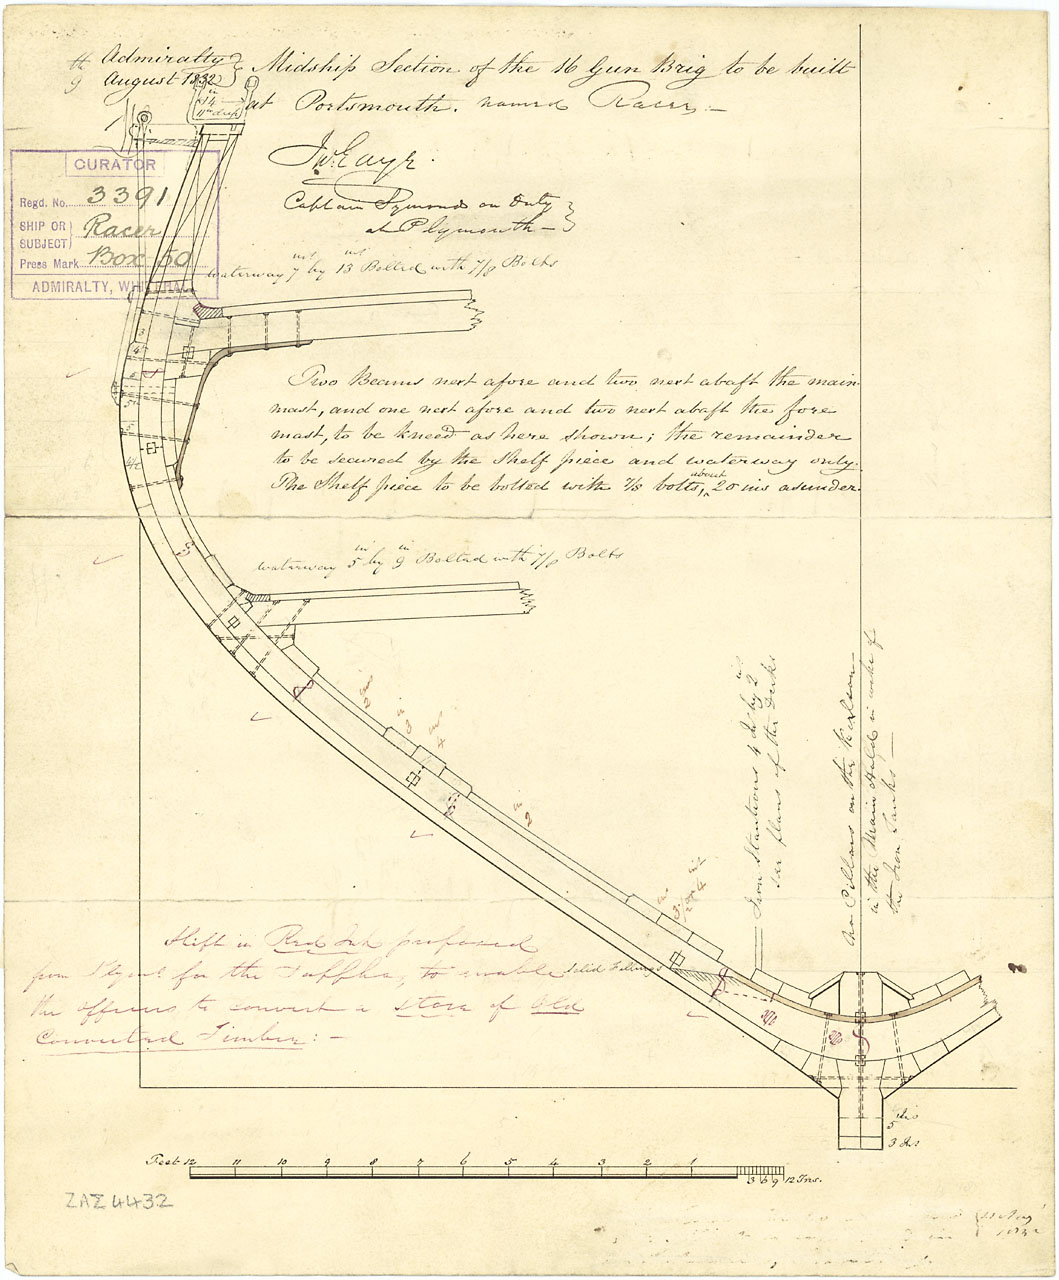 Admiralty
9th August 1832
Midship Section of the 16 Gun Brig to be built
at Portsmouth. named Racer.
14 in
Captain Symonds on Duty
at Plymouth
CURATOR
Regd. No. 3391
SHIP OR SUBJECT Racer
Press Mark Box 50
ADMIRALTY, WHITEHALL
waterway 7 ins by 13 ins Bolted with 7/8 Bolts
Two Beams next afore and two next abaft the main
mast, and one next afore and two next abaft the fore
mast, to be kneed as here shown; the remainder
to be secured by the Shelf piece and waterway only.
The Shelf piece to be bolted with 7/8 bolts, about 20 ins asunder.
waterway 5 in by 9 in Bolted with 7/8 Bolts
3
4
5
5
4 1/2
3
4
2 in
Iron Stantions 4 In by 2 in
see plans of the Decks
No Pillars on the Keelson
in the Main Hold in wake of
the Iron Tanks
Shift in Red Ink proposed
from Plymo for the to enable
the officers to convert a store of Old
Converted Timber:-
Solid Fillings
5 Ins
3 Ins
Feet 12 11 10 9 8 7 6 5 4 3 2 1 3 6 9 12 Ins.
ZAZ4432